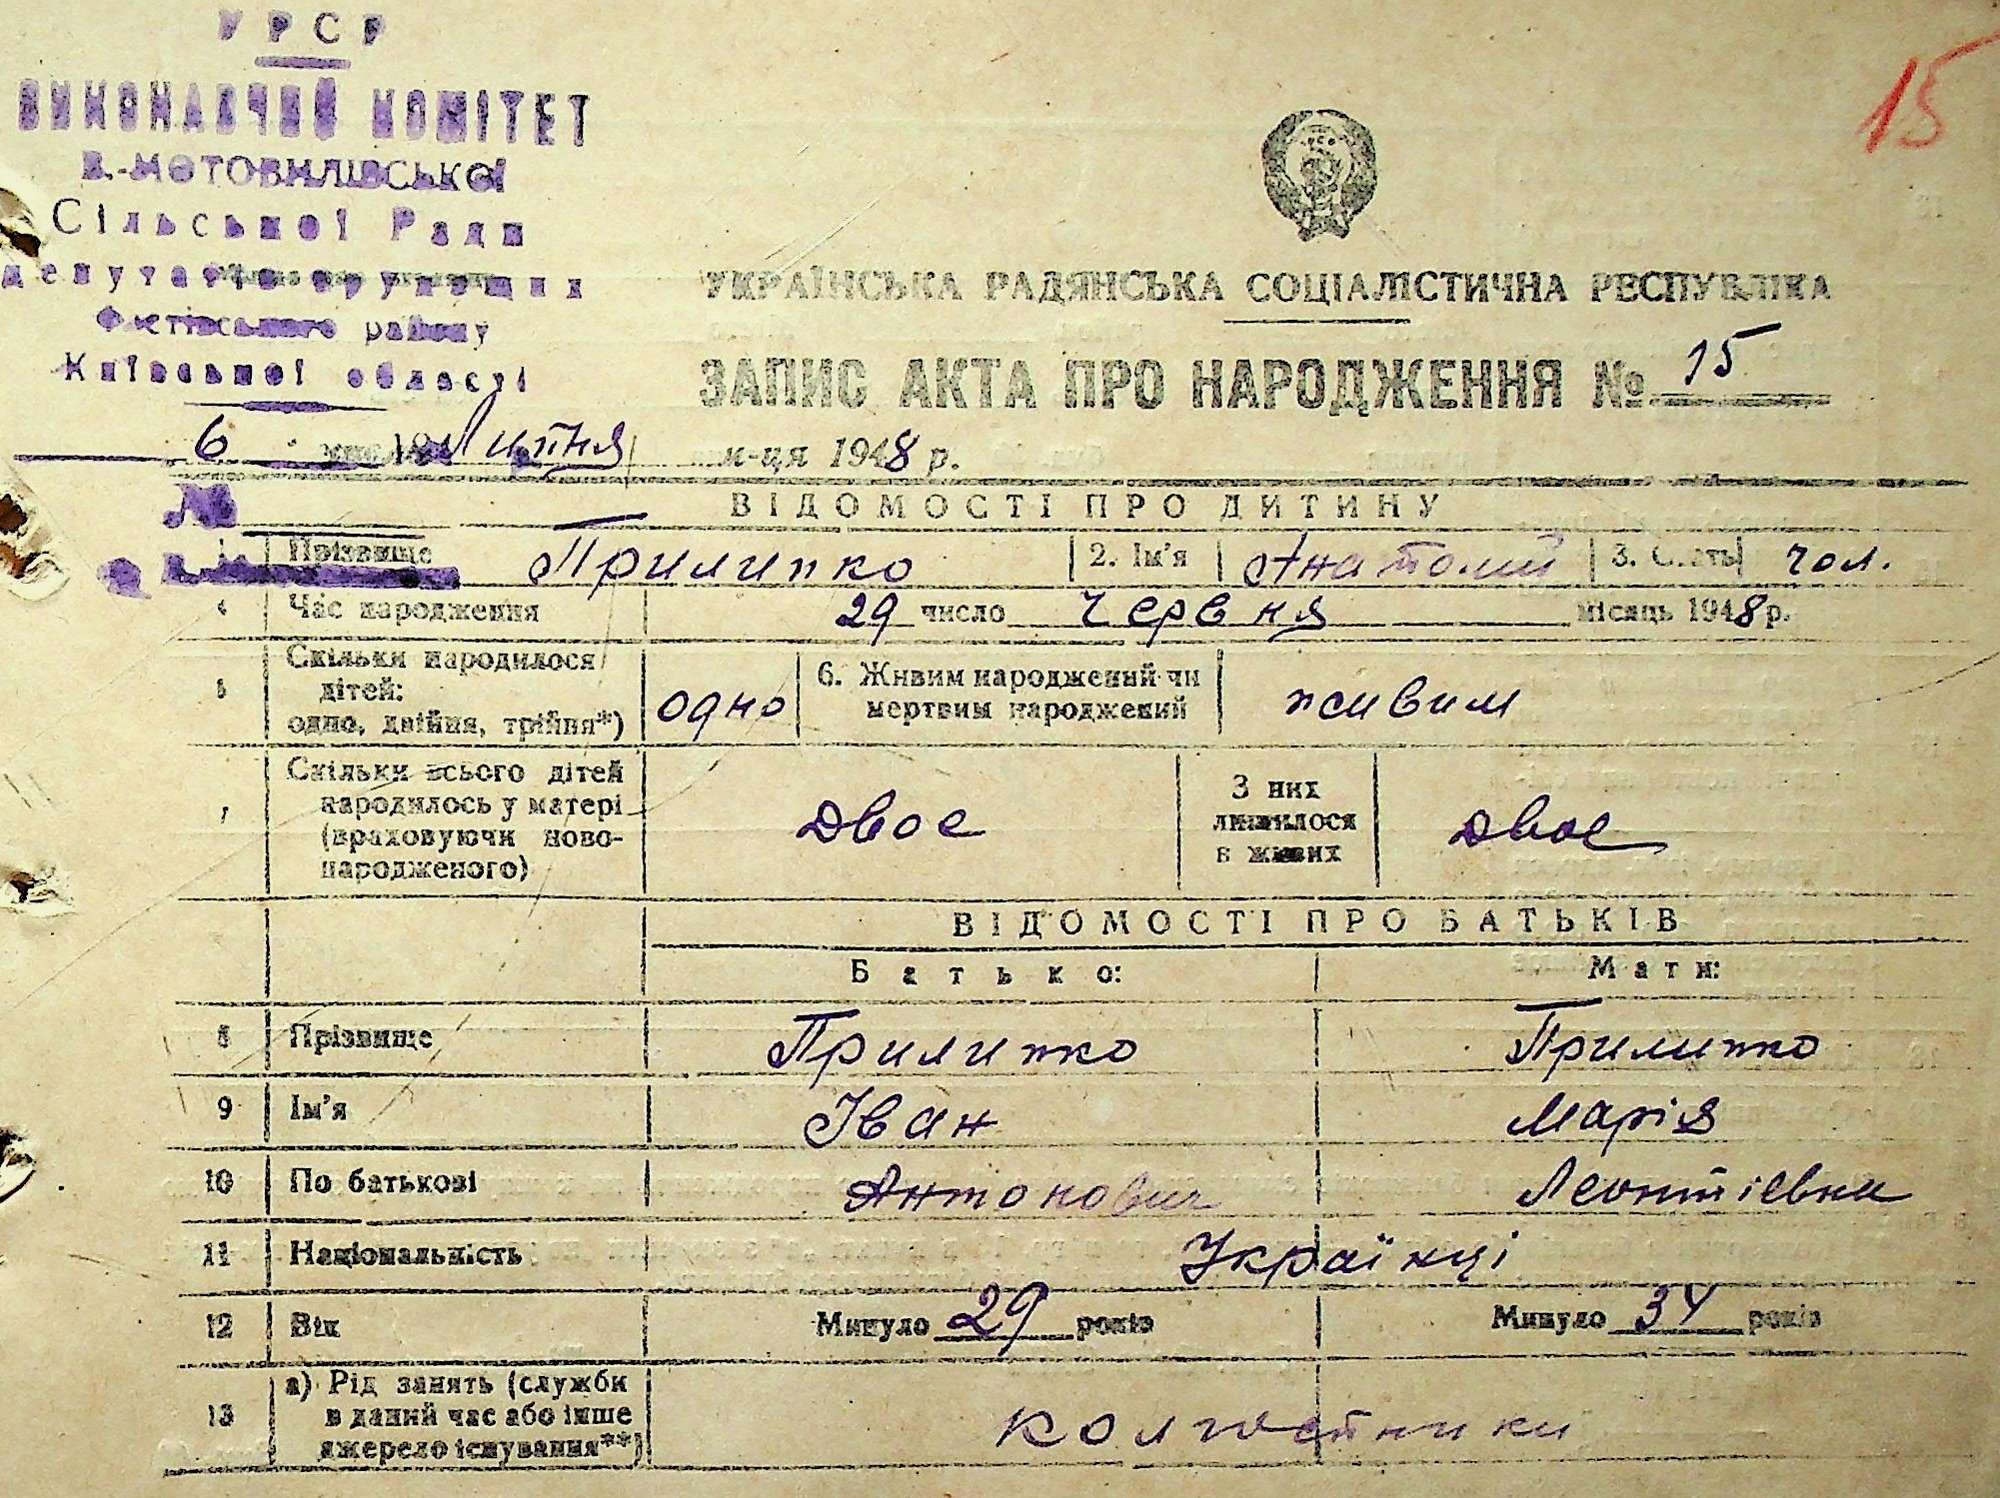 УРСР
15
ВИКОНАВЧИЙ КОМІТЕТ
В.-МОТОВИЛІВСЬКОЇ
Сільської Ради
депутатів трудящих
Фастівського району
Київської області
УКРАЇНСЬКА РАДЯНСЬКА СОЦІАЛІСТИЧНА РЕСПУБЛІКА
ЗАПИС АКТА ПРО НАРОДЖЕННЯ № 15
6 Липня м-ця 1948 р.
№
ВІДОМОСТІ ПРО ДИТИНУ
Прізвище Прилипко 2. Ім'я Анатолий 3. Стать чол.
4 Час народження 29 число Червня місяць 1948 р.
5 Скільки народилося дітей: одно, двійня, трійня*) одно 6. Живим народжений чи мертвим народжений живим
7 Скільки всього дітей народилось у матері (враховуючи ново-народженого) Двое З них лишилося в живих Двое
ВІДОМОСТІ ПРО БАТЬКІВ
Батько: Мати:
8 Прізвище Прилипко Прилипко
9 Ім'я Іван Марія
10 По батькові Антонович Леонтіевна
11 Національність Українці
12 Вік Минуло 29 років Минуло 34 років
13 а) Рід занять (служби в даний час або інше джерело існування**) колгостники